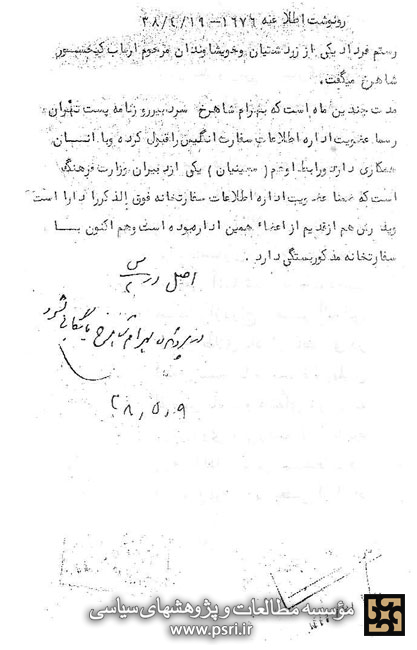 رونوشت اطلاعیه ۱۶۷۶–۳۸/۴/۱۹
رستم فرداد یکی از زردشتیان وخویشاوندان مرحوم ارباب کیخسرو
شاهرخ میگفت.
مدت چندین ماه است که بهرام شاهرخ سردبیر روزنامه پست تهران
رسما عضویت اداره اطلاعات سفارت انگلیس را قبول کرده وبا انسان
همکاری دارد ورابط او هم (مهینیان) یکی از دبیران وزارت فرهنگ
است که ضمنا عضویت اداره اطلاعات سفارتخانه فوق الذکر را دارا است
هم از قدیم از اعضاء همین اداره بوده است وهم اکنون بـا
سفارتخانه مذکور بستگی دارد.
اصل در س
در پرونده بهرام شاهرخ بایگانی شود
۳۸٫۵٫۹
مؤسسه مطالعات و پژوهشهای سیاسی
www.psri.ir